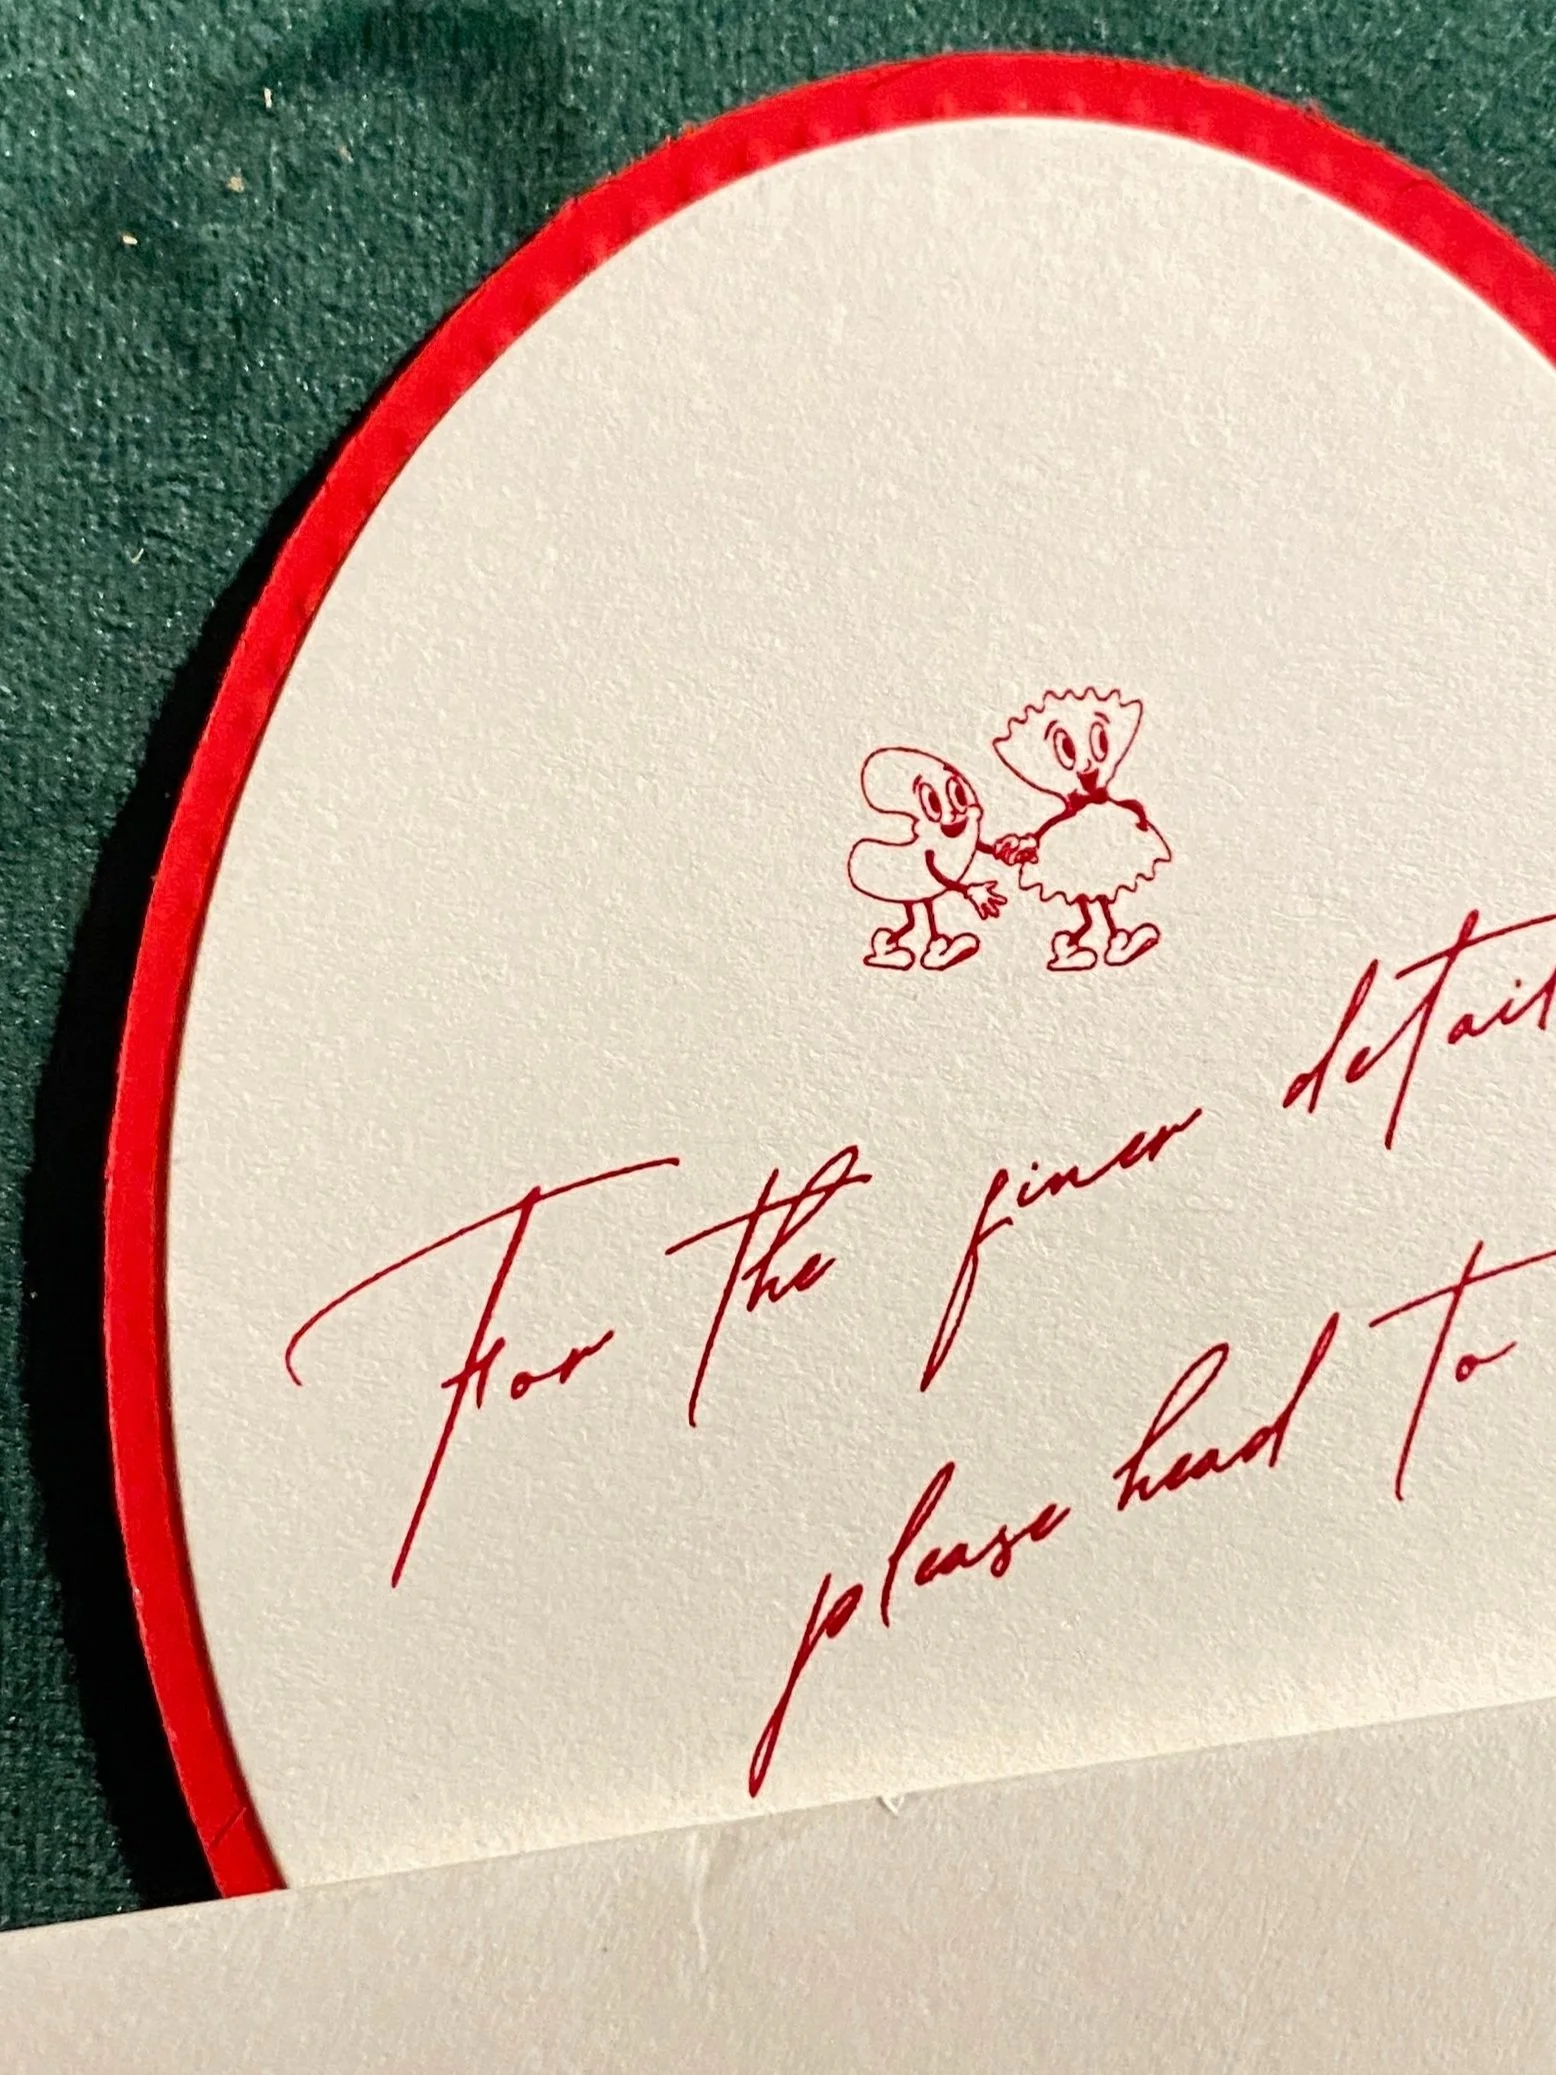 For the finer detail
please head to